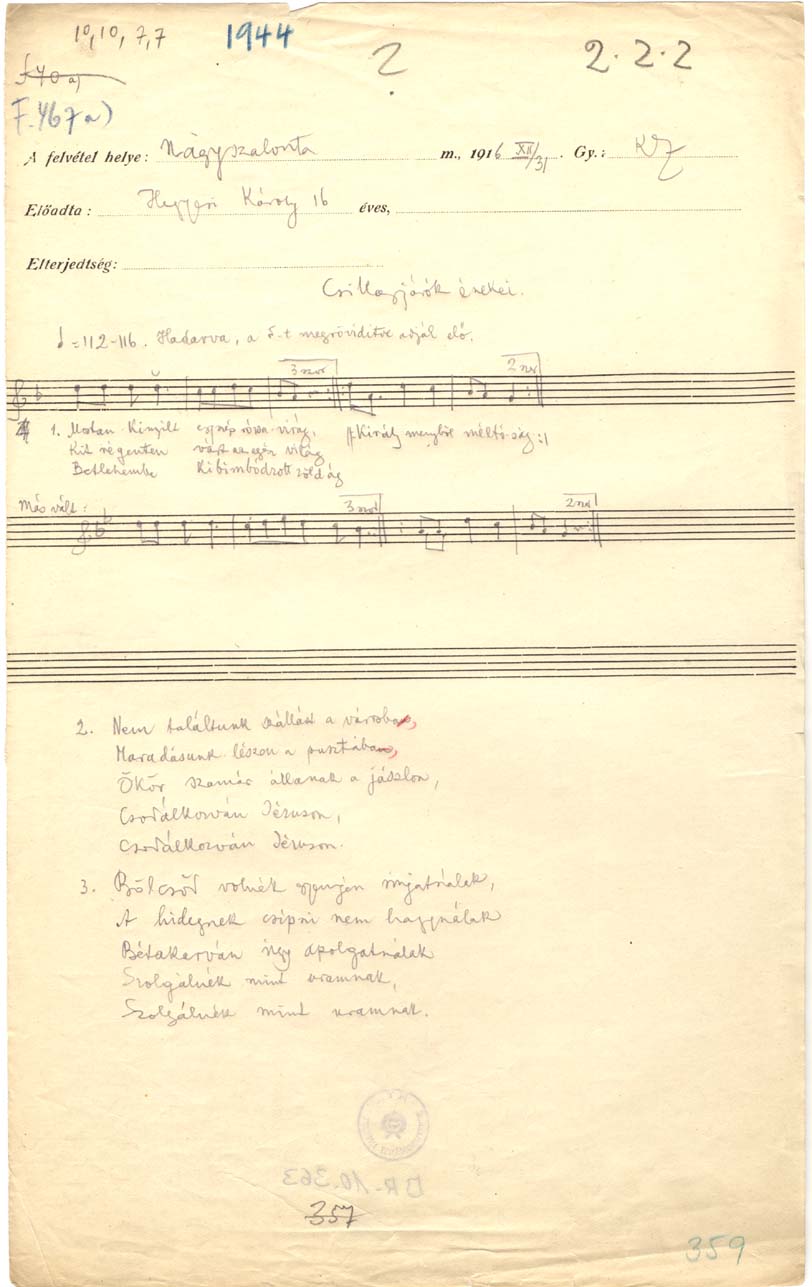 10, 10, 7, 7
1944
?
2·2·2
f 40 a)
F. 467 a)
A felvétel helye: Nagyszalonta m., 1916 XII/31. Gy.: KZ
Előadta: Hegyesi Károly 16 éves,
Elterjedtség:
Csillagjárók énekei.
=112-116. Hadarva, a megrövidítve adják elő.
3szor 2szer
1. Mostan kinyílt szép rózsa virág, Király menyből méltóság:|
Kit régenten várt az egész világ
Betlehembe kibimbódzott zöld ág
Más vált:
3szor 2szer
2. Nem találtunk szállást a városba,
Maradásunk lészen a pusztában,
Ökör szamár állanak a jászlon,
Csodálkozván Jézuson,
Csodálkozván Jézuson.
3. Bölcsőd volnék ringatnálak,
A hidegnek csípni nem hagynálak
Bétakarván úgy ápolgatnálak
Szolgálnék mint uramnak,
Szolgálnék mint uramnak.
BR-10.363
357
359